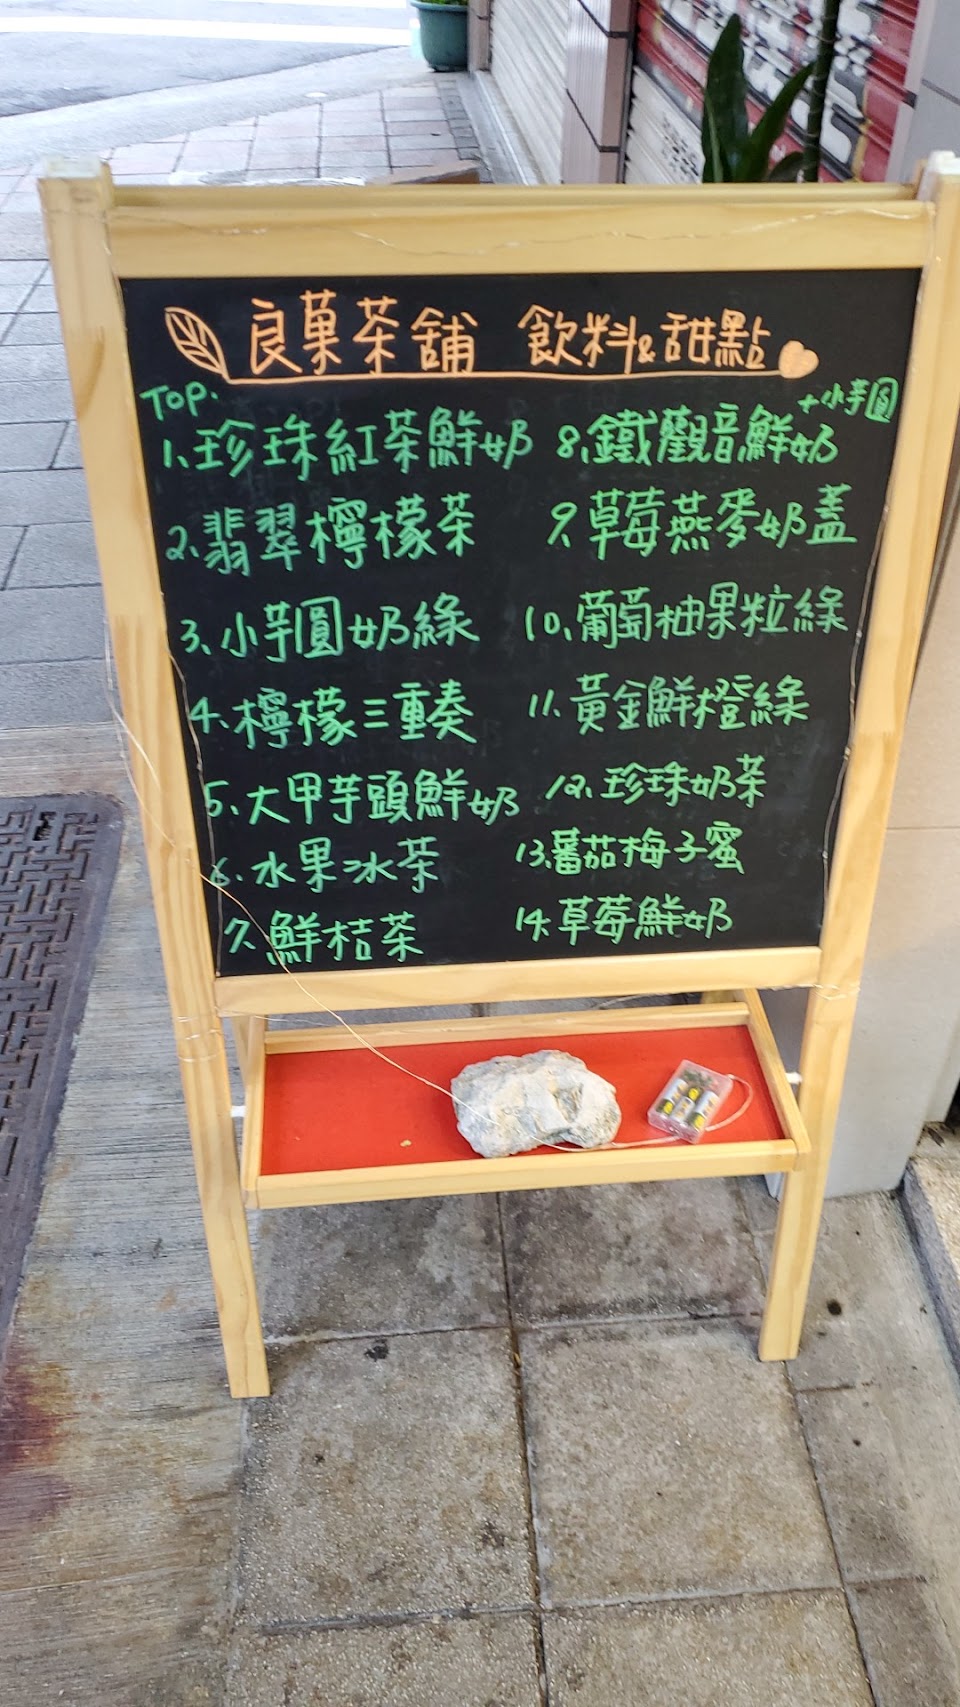 良菓茶舖 飲料&甜點
TOP.
1、珍珠紅茶鮮奶
2、翡翠檸檬茶
3、小芋圓奶綠
4、檸檬三重奏
5、大甲芋頭鮮奶
6、水果冰茶
7、鮮桔茶
+小芋圓
8、鐵觀音鮮奶
9、草莓燕麥奶蓋
10、葡萄柚果粒綠
11、黃金鮮橙綠
12、珍珠奶茶
13、蕃茄梅子蜜
14、草莓鮮奶